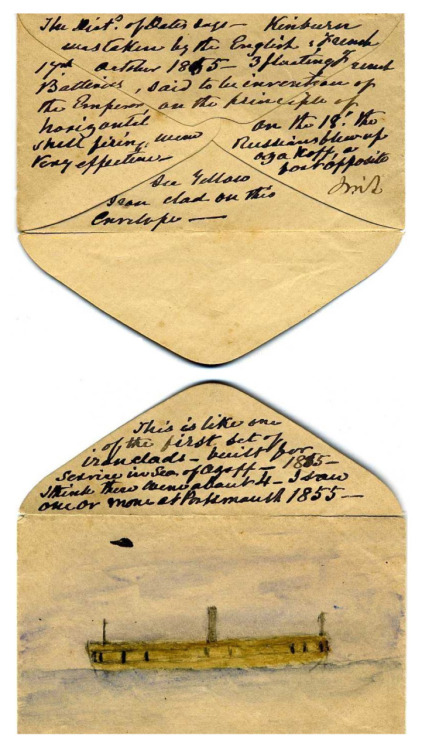 The Dict.y of Dates says — Kinburn
was taken by the English & French
17th October 1855 — 3 floating French
Batteries, said to be invention of
the Emperor on the principle of
horizontal
shell firing, were
very effective
on the 18th the
Russians blew up
Oczakoff, a
fort opposite
See Yellow
Iron clad on this
Envelope —
This is like one
of the first set of
iron clads — built for
Service in Sea of Azoff — 1855 —
I think there were about 4 — I saw
one or more at Portsmouth 1855 —